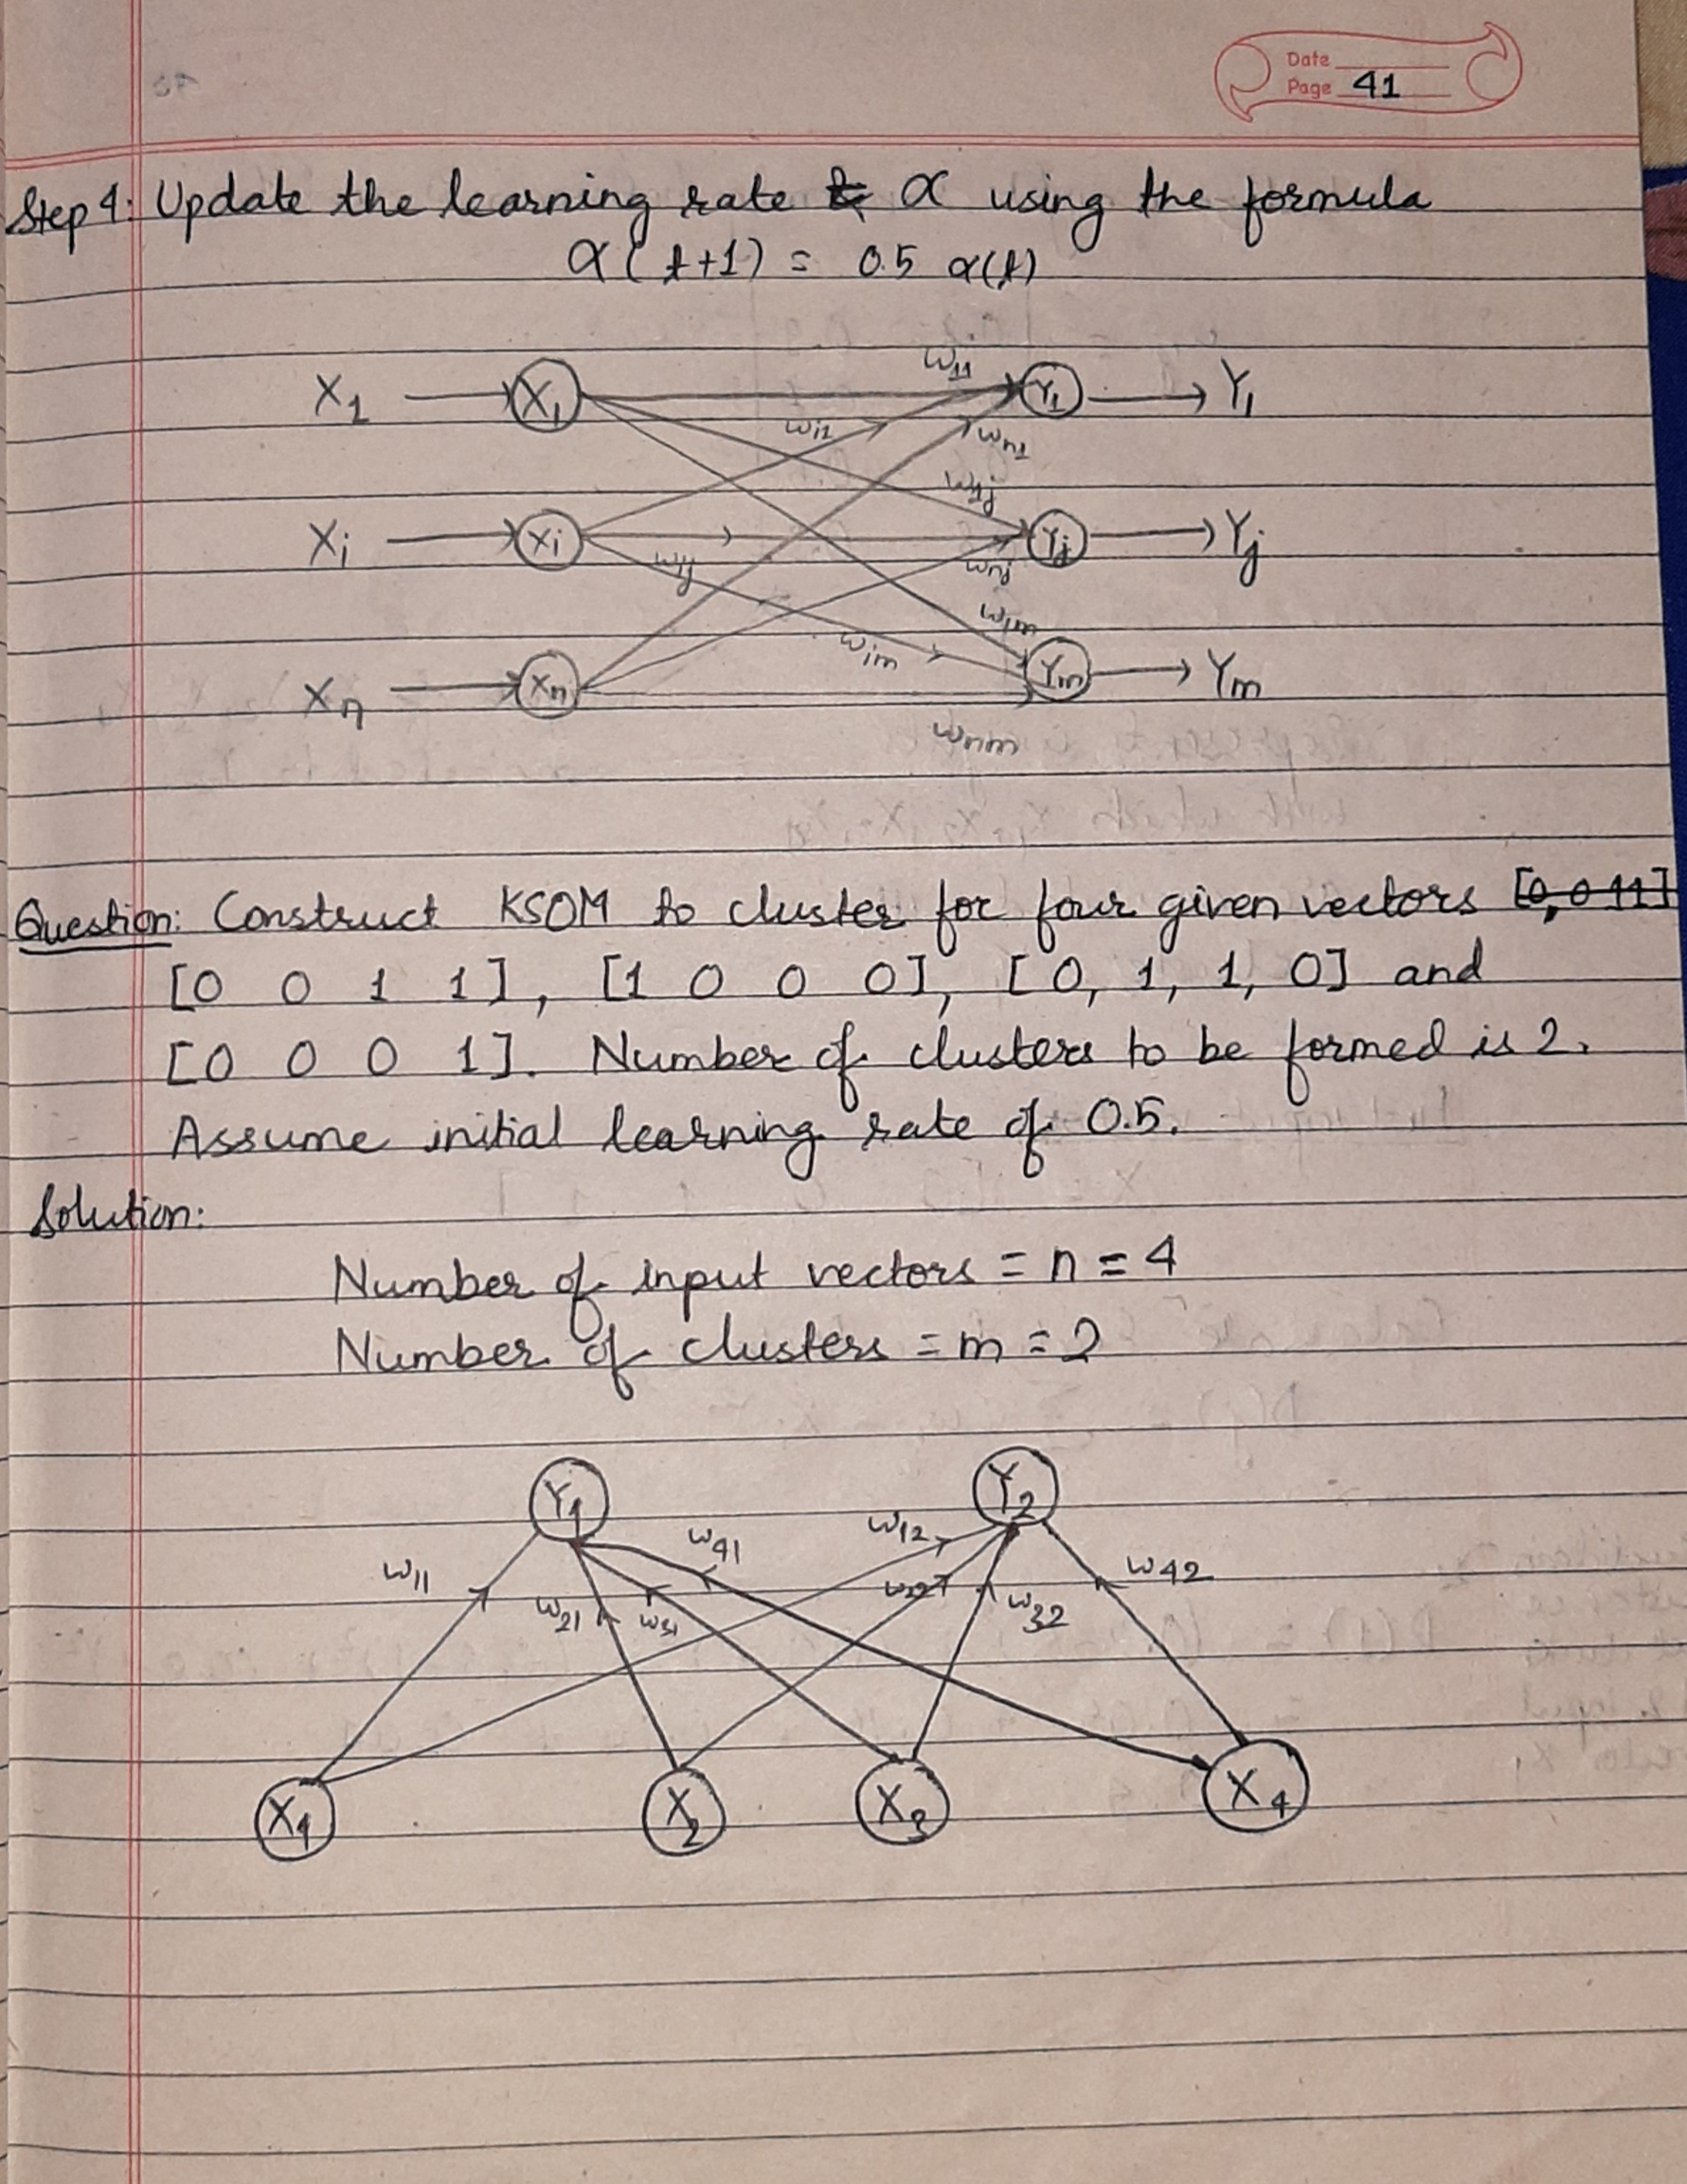 Date
Page 41
Step 4: Update the learning rate α using the formula
α(t+1) = 0.5 α(t)
X1 X1 w11 Y1 Y1
wi1 wn1
w1j
Xi Xi Yj Yj
wij wnj
w1m
wim
Xn Xn Ym Ym
wnm
Question: Construct KSOM to cluster for four given vectors [0, 0 11]
[0 0 1 1], [1 0 0 0], [0, 1, 1, 0] and
[0 0 0 1]. Number of clusters to be formed is 2.
Assume initial learning rate of 0.5.
Solution:
Number of input vectors = n = 4
Number of clusters = m = 2
Y1 Y2
w11 w41 w12 w42
w21 w31 w22 w32
X1 X2 X3 X4